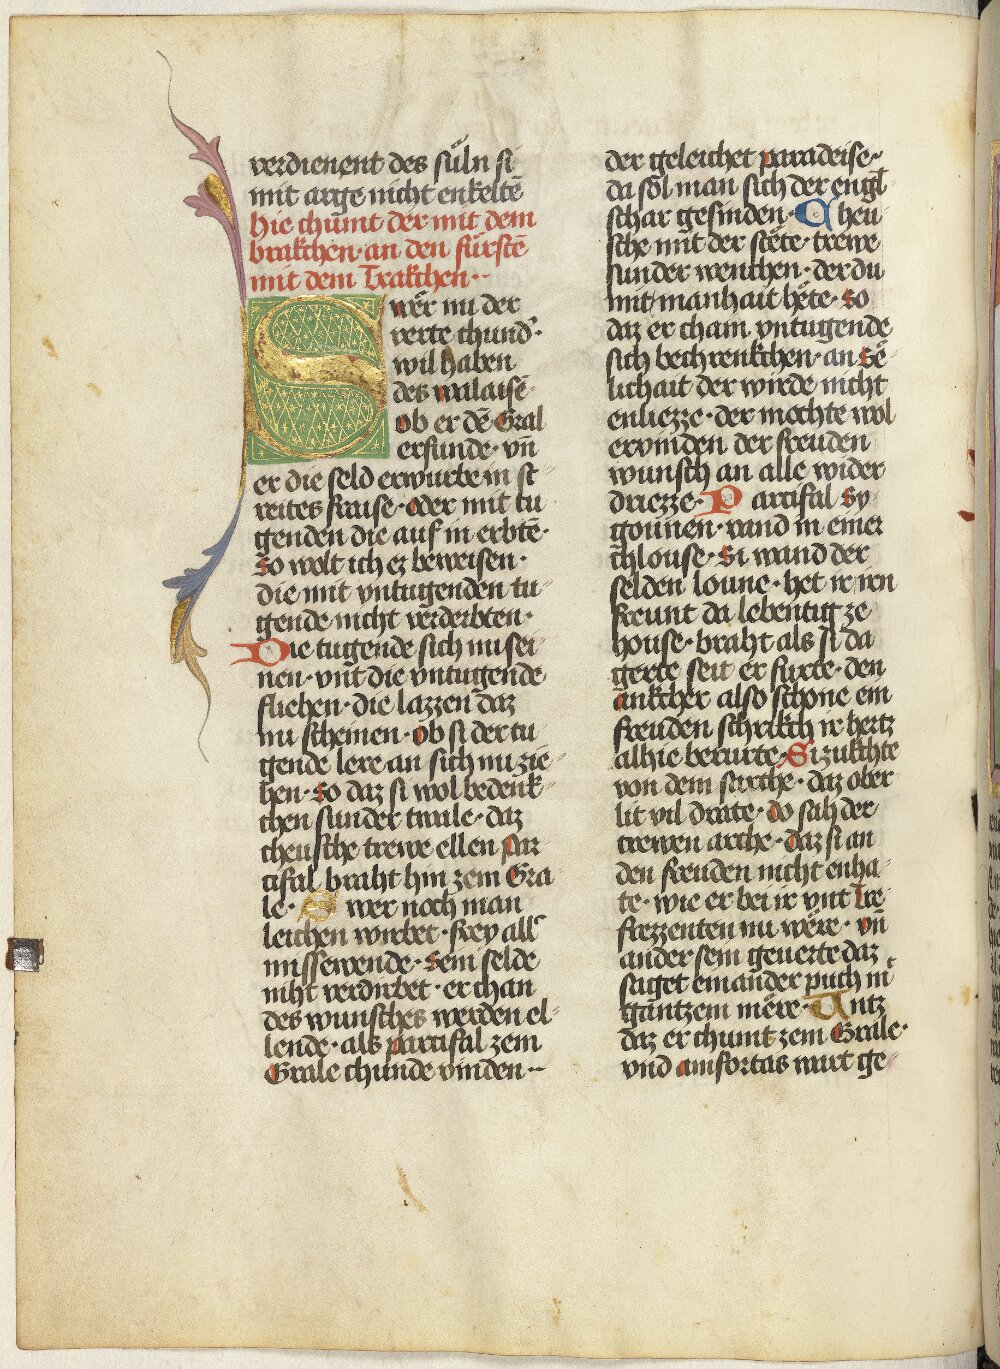 verdienent des süln si
mit arge nicht enkeltē
hie chumt der mit dem
brakchen · an den fürstē
mit dem Trakchen ··
Swer nu der
verte chund ·
wil haben
des walaisē ·
ob er dē Gral
erfunde · vn̄
er die seld erwurbe in st
reites fraise · oder mit tu
genden die auf in erbtē ·
So wolt ich ez beweisen ·
die mit vntugenden tu
gende nicht verderbten ·
Die tugende sich nu sei
nen · vnt die vntugende
fliehen · die lazzen daz
nu scheinen · ob si der tu
gende lere an sich nu zie
hen · So daz si wol bedenk
chen sunder twale · daz
cheusche trewe ellen par
tifal braht hin zem Gra
le · Swer noch man
leichen wirbet · frey all
missewende · Sein selde
niht verdirbet · er chan
des wunsches werden el
lende · als partifal zem
Grale chunde vinden ··
der geleichet paradeise ·
da sol man sich der engl
schar gesinden · Cheu
sche mit der stete · trewe
sunder wenchen · der du
mit manhait hete · So
daz er cham vntugende
sich bechrenkchen · an Se
lichait der wirde nicht
enliezze · der mochte wol
ervinden der freuden
wunsch an alle wider
driezze · Partifal Sy
gounen · vand in einer
chlouse · Si wand der
selden loune · het ir irn
freunt da lebentig ze
house · braht als si da
gerte seit er fuxte · den
ankcher also schone ein
freuden schrikch ir hertz
alhie berurte · Si zukchte
von dem sarche · daz ober
lit vil drate · do sah der
trewen arche · daz si an
den freuden nicht enha
te · wie er bei ir vnt Tre
frezzenten nu were · vn̄
ander sein geuerte daz
saget ein ander puch in
gantzem mere · Untz
daz er chumt zem Grale ·
vnd amfortas wart ge